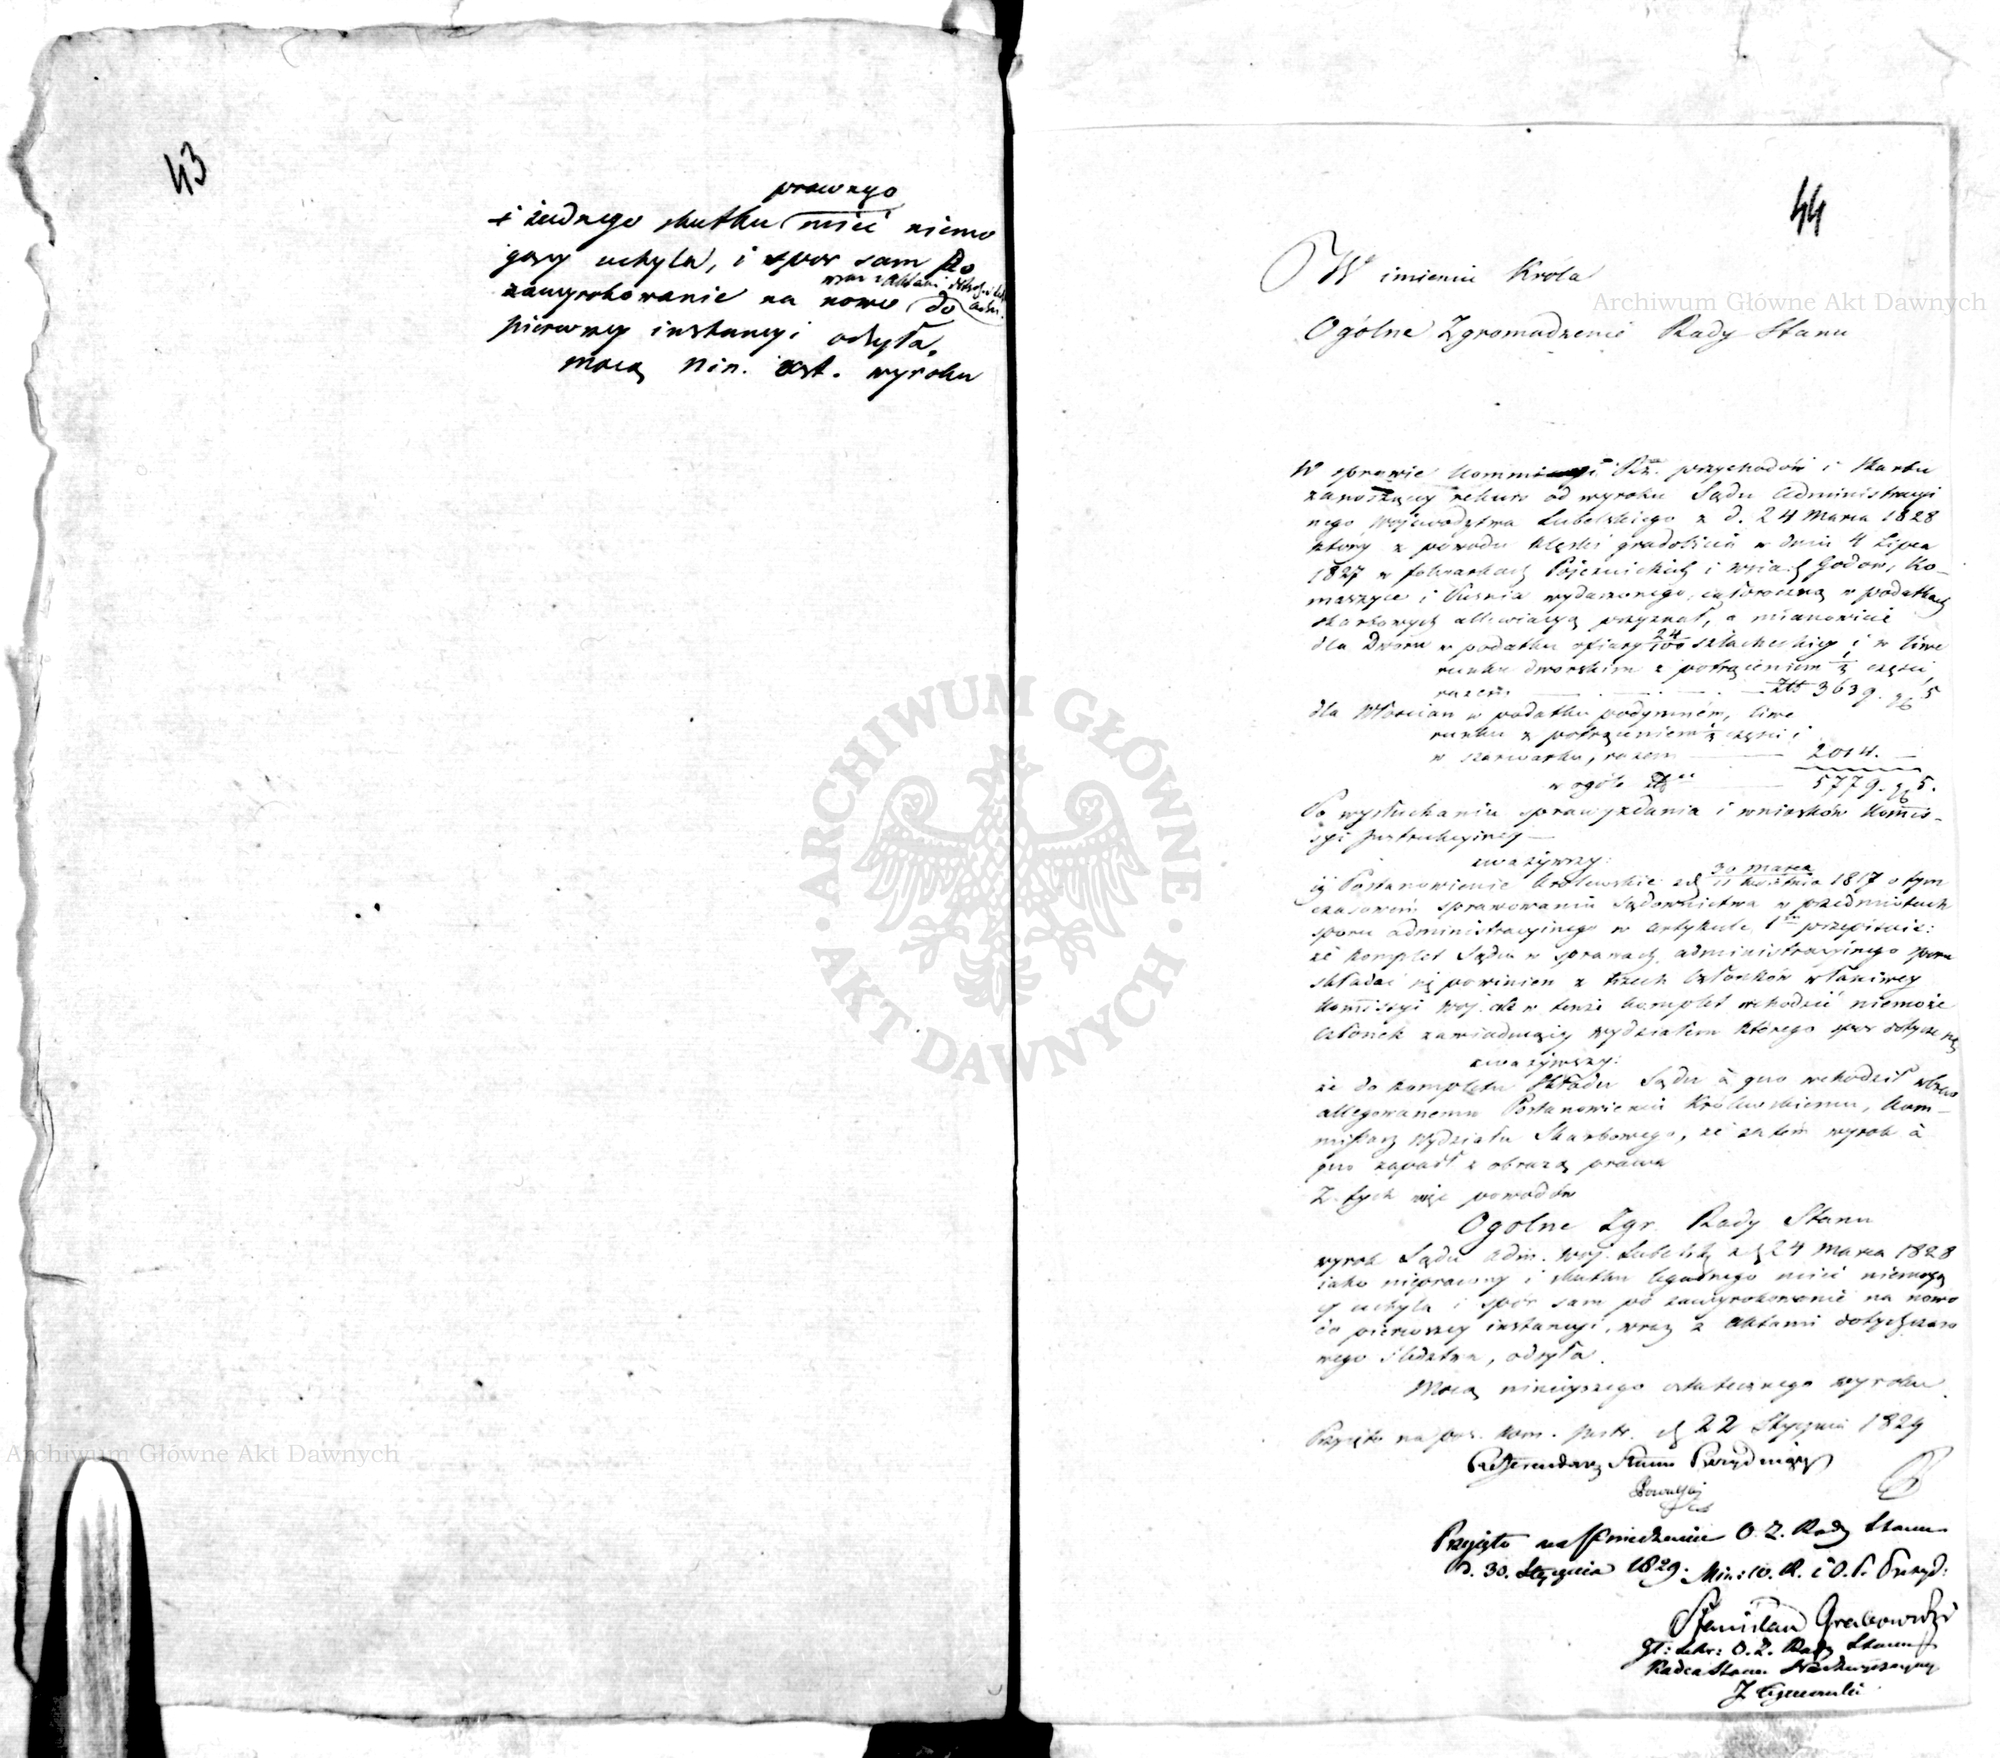 43
prawnego
i żadnego skutku mieć niemo
gący uchyla, i spór sam po
wraz z aktami
zawyrokowanie na nowo do
pierwszey instancyi odsyła.
mocą nin. ost. wyroku
44
W imieniu Króla
Archiwum Główne Akt Dawnych
Ogólne Zgromadzenie Rady Stanu
W sprawie Kommissyi Rz. przychodów i skarbu
zanoszącey rekurs od wyroku Sądu Administracyi
nego Województwa Lubelskiego z d. 24 Marca 1828
który z powodu klęski gradobicia w dniu 4 Lipca
1827 w folwarkach i wsiach Godów, Ko-
maszyce i wydarzonego, całoroczną w podatkach
skarbowych allewiacyą przyznał, a mianowicie
dla Dworu w podatku ofiary 24/100 szlacheckiey i w liwe
runku dworskim z potrąceniem 1/3 części
razem Złt 3639. 5
dla Włościan w podatku podymném, liwe
runku z potrąceniem 1/3 części i
w szarwarku, razem 2014. —
w ogóle Złt 5779. 5.
Po wysłuchaniu sprawozdania i wniosków Komis-
syi Instrukcyiney —
zważywszy:
iż Postanowienie Królewskie z d. 30 Marca / 11 Kwietnia 1817 o tym
czasowém sprawowaniu Sądownictwa w przedmiotach
sporu administracyinego w artykule 1 przepisuie:
że komplet Sądu w sprawach administracyinego sporu
składać się powinien z trzech Członków właściwey
Komissyi Woj. że w tenże komplet wchodzić niemoże
Członek zawiaduiący wydziałem którego spór dotycze się
zważywszy:
że do kompletu składu Sądu à quo wchodził wbrew
allegowanemu Postanowieniu Królewskiemu, Kom-
missarz Wydziału Skarbowego, że zatem wyrok à
quo zapadł z obrazą prawa
Z tych więc powodów
Ogolne Zgr. Rady Stanu
wyrok Sądu Adm. Woj. Lubelskiego z d. 24 Marca 1828
iako nieprawny i skutku legalnego mieć niemogą
cy uchyla i spór sam po zawyrokowanie na nowo
do pierwszey instancyi, wraz z aktami dotychczaso
wego śledztwa, odsyła.
Mocą ninieyszego ostatecznego wyroku.
Przyięto na pos. Kom. Instr. d. 22 Stycznia 1829
Referendarz Stanu Prezyduiący
Przyięto na posiedzeniu O. Z. Rady Stanu
d. 30. Stycznia 1829. Min: W. R. i O. P. Prezyd:
Stanisław Grabowski
Zt: Sekr: O. Z. Rady Stanu
Radca Stanu Nadzwyczayny
ARCHIWUM GŁÓWNE · AKT DAWNYCH ·
Archiwum Główne Akt Dawnych